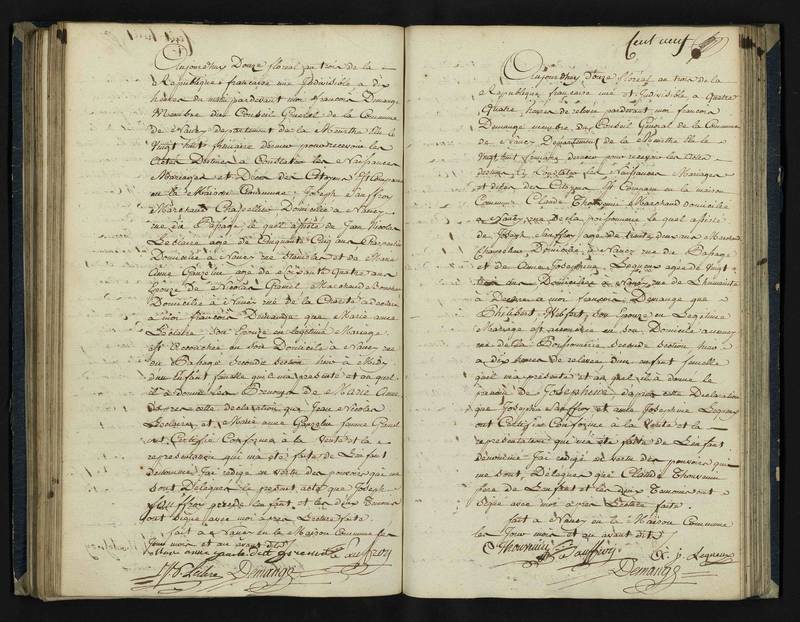 Aujourdhuy Douze floreal an trois de la
Republique francaise une Indivisible a dix
heures du matin pardevant moi francois Demange
Membre du Conseil General de la Commune
de Nancy departement de la Meurthe Elu le
Vingt huit frimaire dernier pour recevoir les
Actes Destinés a Constater les Naissances
Mariages et Deces des Citoyens Est Comparu
en la Maison Commune Joseph Sauffroy
Marchand Chapellier Domicilié a Nancy
rue du Passage le quel assisté de Jean Nicolas
Leclaire agé de Cinquante Cinq ans
Domicilié a Nancy rue Stanislas et de Marie
Anne agée de Soixante quatre ans
Epouze de Nicolas Marchand
Domicilié a Nancy rue de la Charité a declaré
a moi francois Demange que Marie anne
Leclaire Son Epouze en Legitime Mariage
est accouchée en son Domicile a Nancy rue
du Passage Seconde Section hier a Midy
dun Enfant femelle quil ma presenté et au quel
il a donné les Prenoms de Marie Anne
dapres cette declaration que Jean Nicolas
Leclaire et Marie anne
ont Certifié Conforme a la Verité et la
representation qui ma eté faite de Lenfant
denommé Jai redigé en vertu des pouvoirs qui me
sont Delegués le present acte que Joseph
Sauffroy pere de Lenfant et les deux Temoins
ont Signé avec moi apres Lecture faite
fait a Nancy en la Maison Commune les
Jour mois et an avant dits
Demange
Cent neuf
Aujourdhuy Douze floreal an trois de la
Republique francaise une et Indivisible a Quatre
heures de relevée pardevant moi francois
Demange membre du Conseil General de la Commune
de Nancy Departement de la Meurthe Elu le
Vingt huit frimaire dernier pour recevoir les Actes
destinés a Constater les Naissances Mariages
et deces des Citoyens Est Comparu en la maison
Commune Claude Thouvenin Marchand domicilié
a Nancy rue de la poissonnerie le quel assisté
de Joseph Sauffroy agé de trente deux ans Marchand
Chapellier Domicilié a Nancy rue du Passage
et de Anne Josephine Legreux agée de Vingt
trois ans Domiciliée a Nancy rue de Lhumanité
a Declaré a moi francois Demange que
son Epouze en Legitime
Mariage est accouchée en son Domicile a Nancy
rue de la Poissonnerie seconde section hier
a dix heures de relevée dun enfant femelle
quil ma presenté et au quel il a donné le
prenom de Josephine dapres cette Declaration
que Joseph Sauffroy et anne Josephine Legreux
ont Certifié Conforme a la Verité et la
representation qui ma eté faite de Lenfant
denommé Jai redigé en Vertu des pouvoirs qui
me sont Delegués que Claude Thouvenin
pere de Lenfant et les deux Temoins ont
Signé avec moi apres Lecture faite
fait a Nancy en la Maison Commune
les Jour mois et an avant dits
Thouvenin Sauffroy
Legreux
Demange